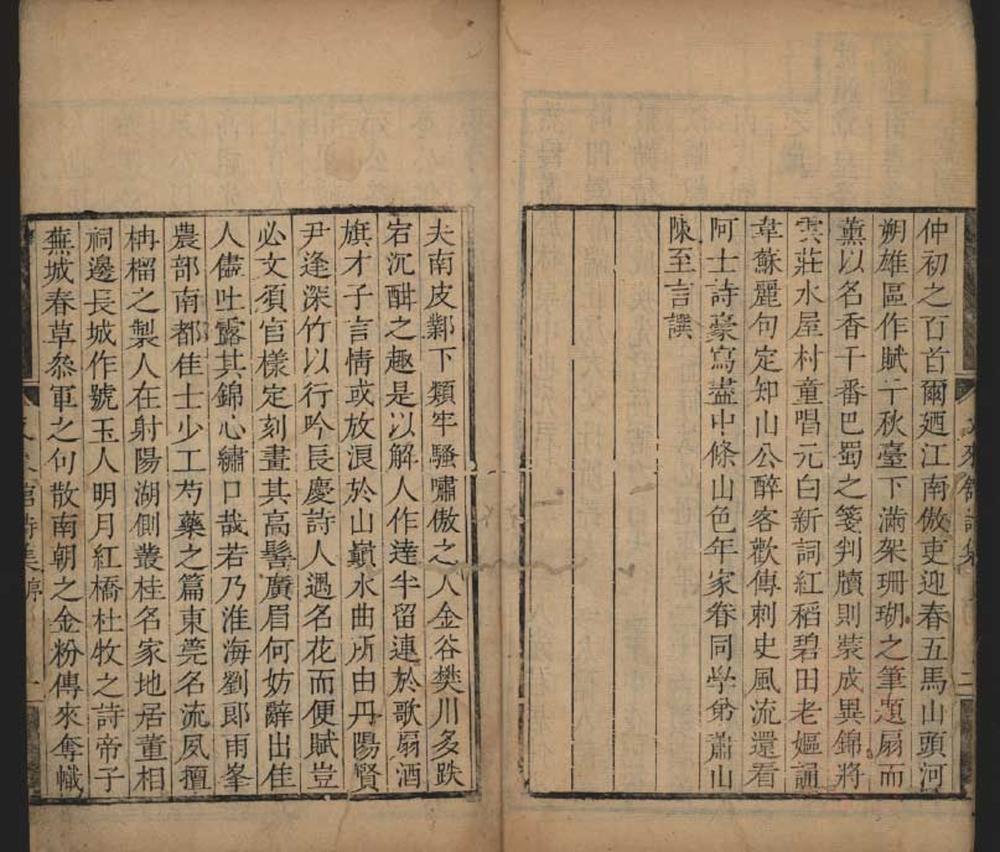 仲初之百首爾廼江南傲吏迎春五馬山頭河
朔雄區作賦千秋臺下滿架珊瑚之筆題扇而
薰以名香千番巴蜀之箋判牘則裝成異錦將
雲莊水屋村童唱元白新詞紅稻碧田老嫗誦
韋蘇麗句定知山公醉客歡傳刺史風流還看
阿士詩豪寫盡中條山色年家眷同學弟蕭山
陳至言譔
夫南皮鄴下類牢騷嘯傲之人金谷樊川多跌
宕沉酣之趣是以解人作達半留連於歌扇酒
旗才子言情或放浪於山巔水曲所由丹陽賢
尹逢深竹以行吟長慶詩人遇名花而便賦豈
必文須官樣定刻畫其高髻廣眉何妨辭出佳
人儘吐露其錦心繡口哉若乃淮海劉郎雨峯
農部南都佳士少工芍藥之篇東莞名流夙擅
柟榴之製人在射陽湖側叢桂名家地居董相
祠邊長城作號玉人明月紅橋杜牧之詩帝子
蕪城春草叅軍之句散南朝之金粉傳來奪幟